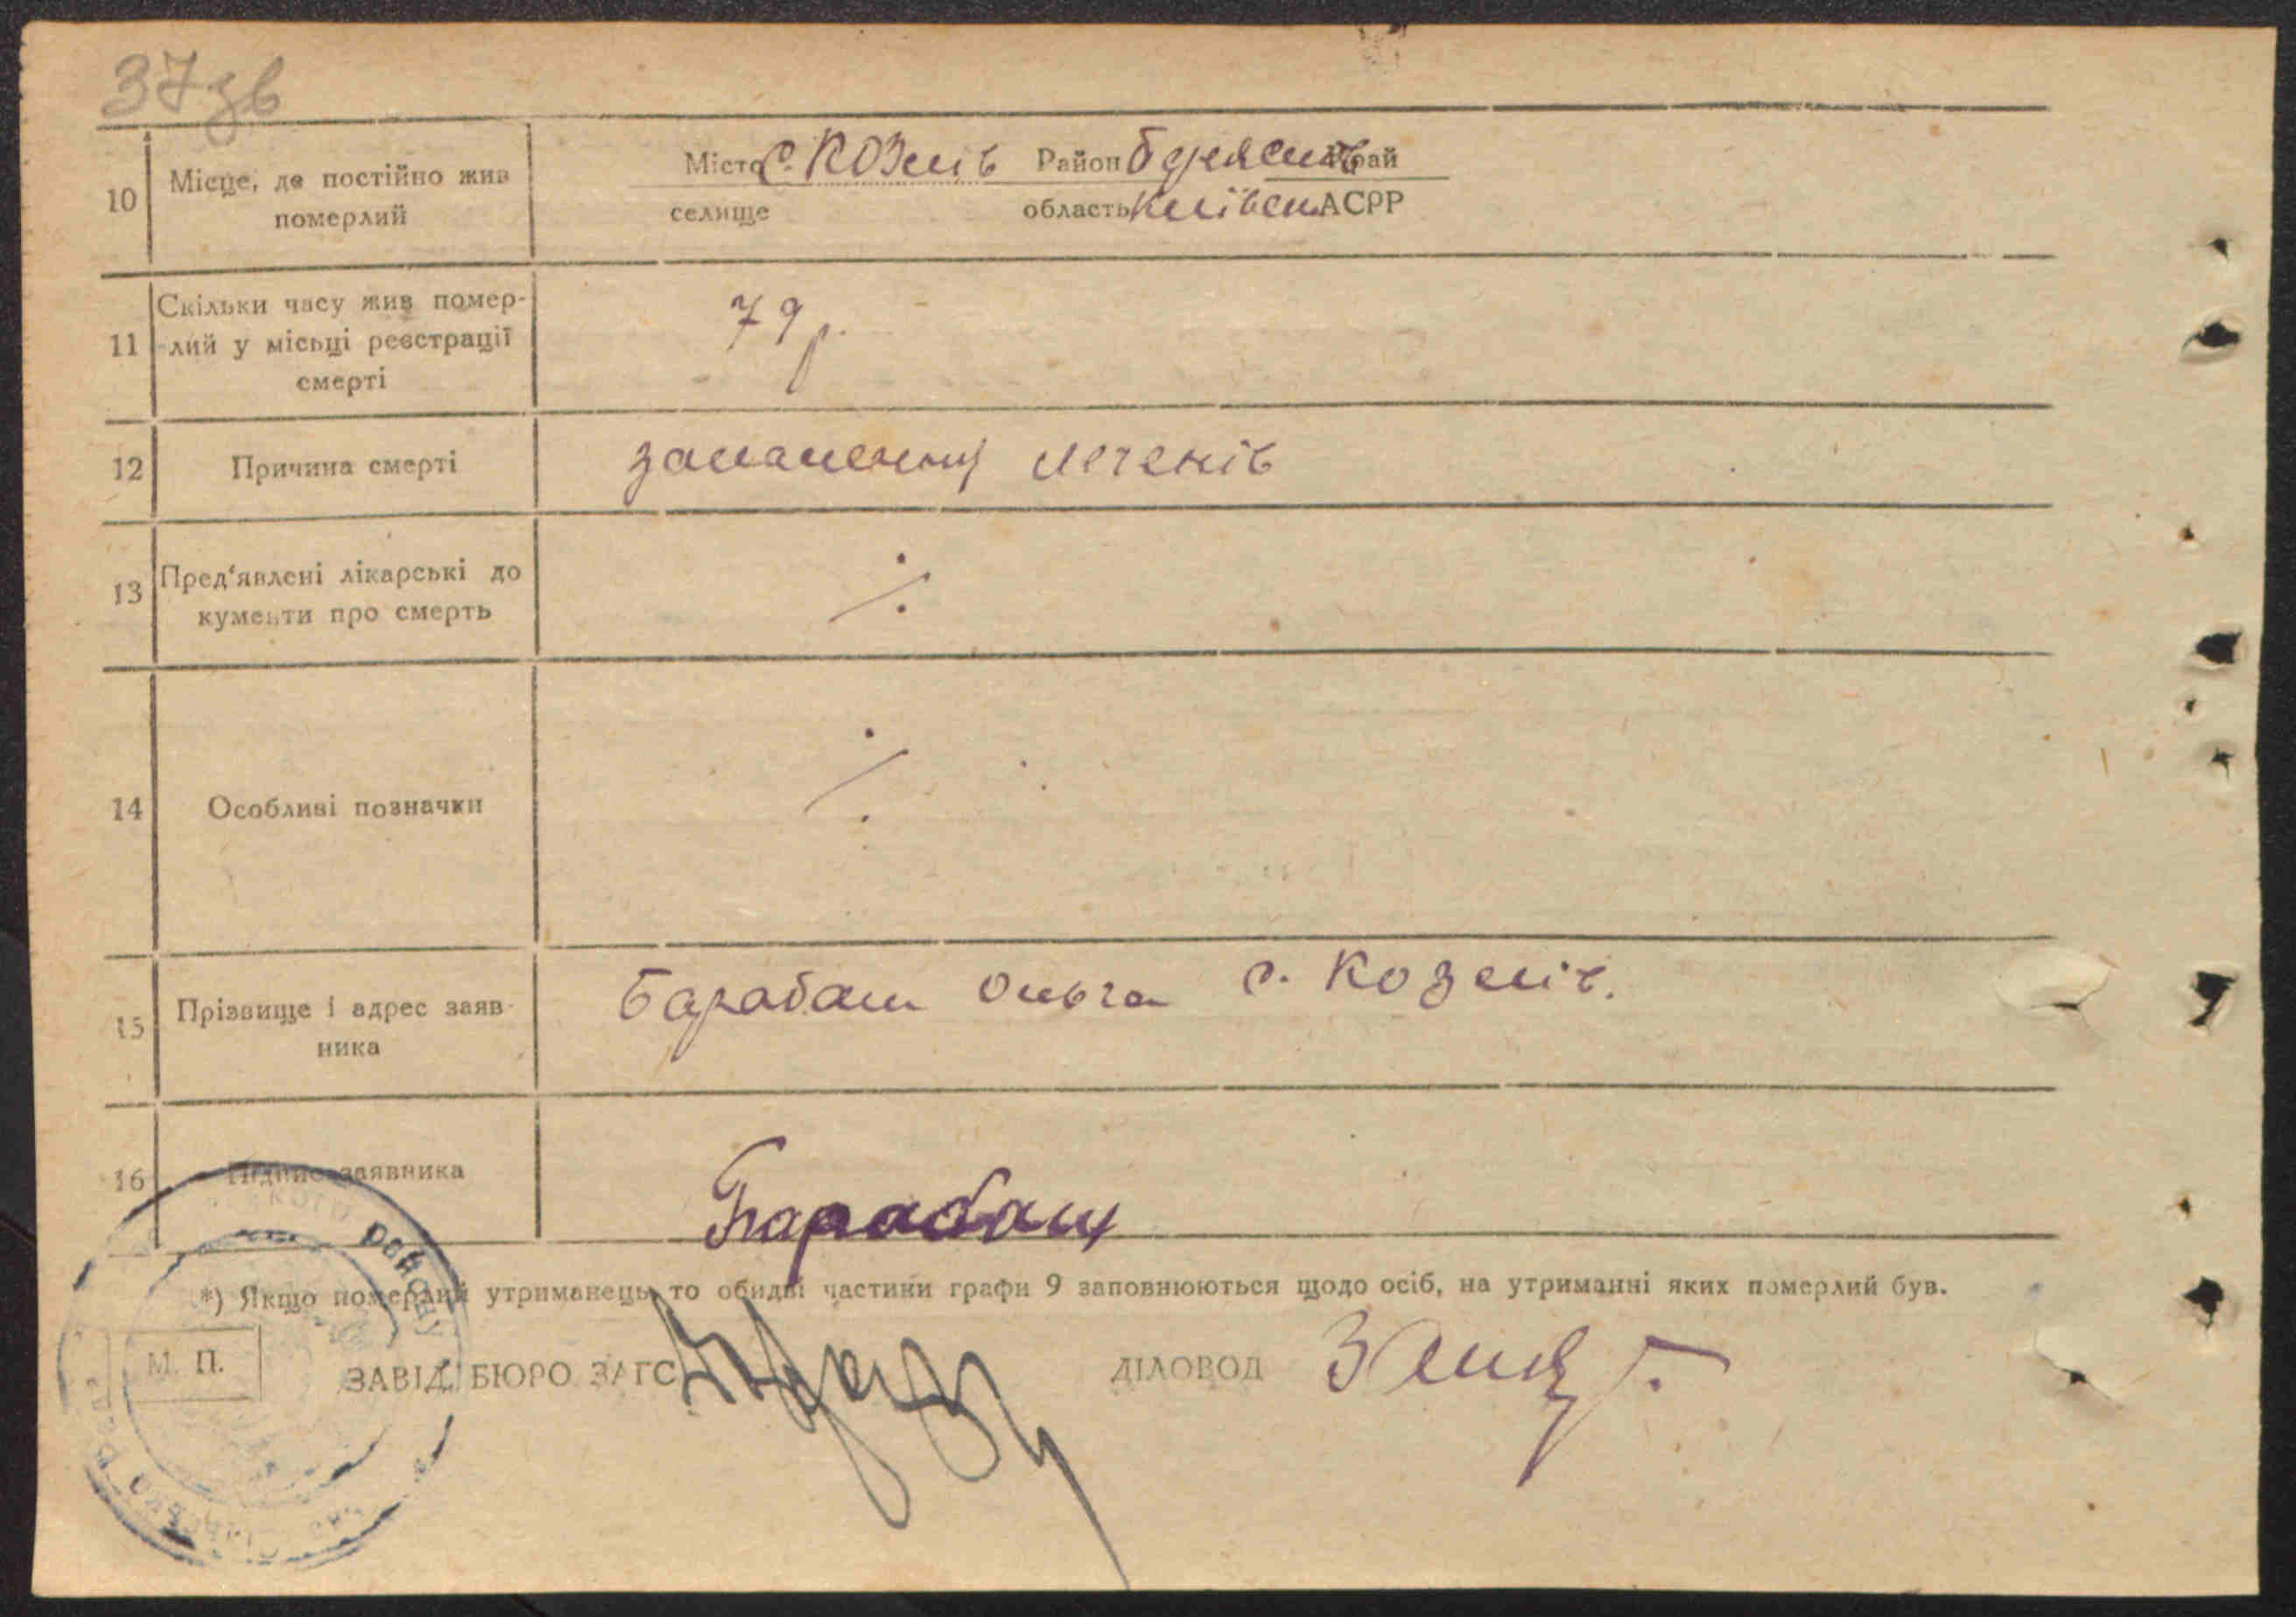 37 зв
10 Місце, де постійно жив померлий
Місто с. Козлів Район Край
селище область Київськ АСРР
11 Скільки часу жив помер-
лий у місьці реєстрації
смерті
79 р.
12 Причина смерті запалення легенів
13 Пред'явлені лікарські до
кументи про смерть
⁒
14 Особливі позначки ⁒
15 Прізвище і адрес заяв-
ника
Барабаш Ольга с. Козлів.
16 Підпис заявника
Барабаш
*) Якщо померлий утриманець, то обидві частини графи 9 заповнюються щодо осіб, на утриманні яких померлий був.
М. П. ЗАВІД. БЮРО ЗАГС ДІЛОВОД